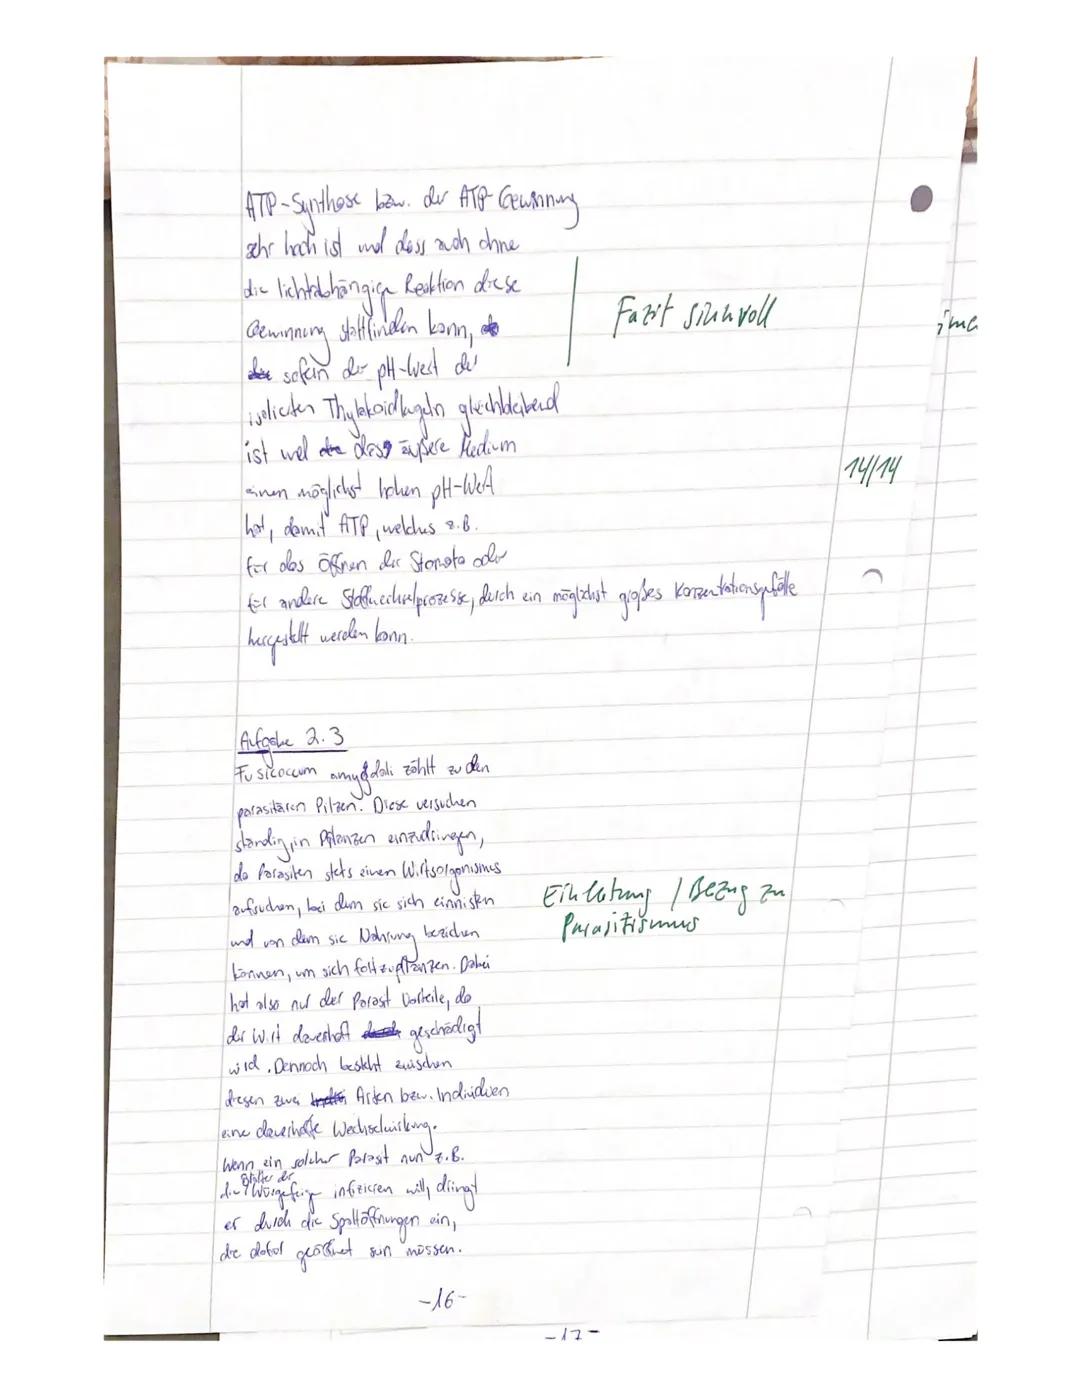 ATP-Synthese bzw. der ATP-Gewinnung
sehr hoch ist und dass auch ohne
die lichtabhängige Reaktion diese
Gewinnung stattfinden kann,
Fazit sinnvoll
sofern der pH-Wert der
isolierten Thylakoidkugeln gleichbleibend
ist und das äußere Medium
einen möglichst hohen pH-Wert
14/14
hat, damit ATP, welches z.B.
für das Öffnen der Stomata oder
für andere Stoffwechselprozesse, durch ein möglichst großes Konzentrationsgefälle
hergestellt werden kann.
Aufgabe 2.3
Fusicoccum amygdali zählt zu den
parasitären Pilzen. Diese versuchen
ständig, in Pflanzen einzudringen,
da Parasiten stets einen Wirtsorganismus
aufsuchen, bei dem sie sich einnisten
Einleitung / Bezug zu
Parasitismus
und von dem sie Nahrung beziehen
können, um sich fortzupflanzen. Dabei
hat also nur der Parasit Vorteile, da
der Wirt dauerhaft geschädigt
wird. Dennoch besteht zwischen
diesen zwei Arten bzw. Individuen
eine dauerhafte Wechselwirkung.
Wenn ein solcher Parasit nun z.B.
Blätter der
die Würgefeige infizieren will, dringt
er durch die Spaltöffnungen ein,
die dafür geöffnet sein müssen.
-16-
-17-